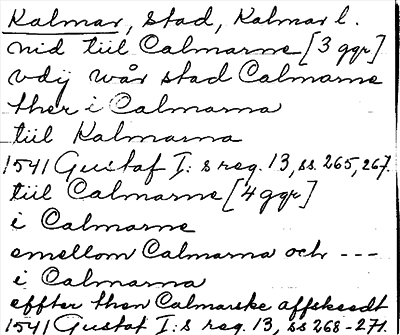 Kalmar, stad, Kalmar l.
nid tiil Calmarne [3 ggr]
vdij wår stad Calmarne
ther i Calmarna
tiil Kalmarna
1541 Gustaf I:s reg. 13, ss. 265, 267.
tiil Calmarne [4 ggr]
i Calmarne
emellom Calmarna och ---
i Calmarna
effter then Calmarske affskeedt
1541 Gustaf I:s reg. 13, ss 268-271.